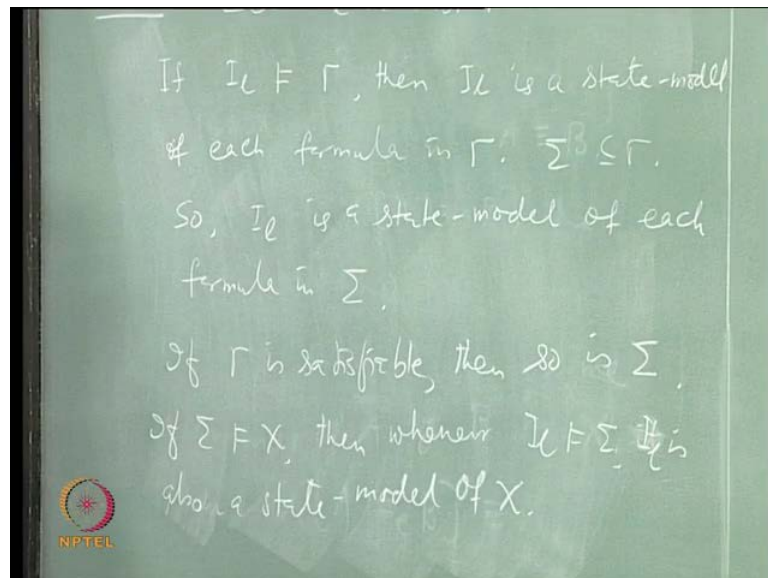 If I_l ⊨ Γ, then I_l is a state-model
of each formula in Γ. Σ ⊆ Γ.
So, I_l is a state-model of each
formula in Σ.
If Γ is satisfiable, then so is Σ.
If Σ ⊨ X, then whenever I_l ⊨ Σ, I_l is
also a state-model of X.
NPTEL